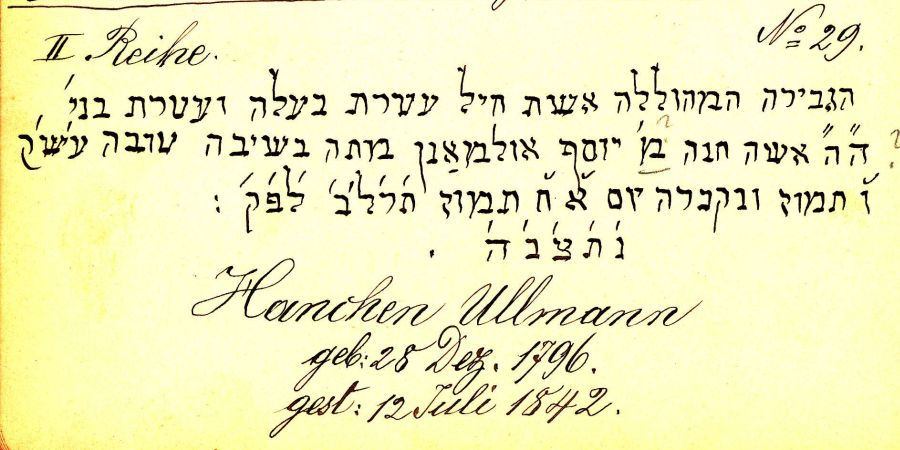 II Reihe. No 29.
הגבירה המהוללה אשת חיל עטרת בעלה ועטרת בני'
ה"ה אשה חנה מ' יוסף אולמאנן מתה בשיבה טובה עש'ק ?
ו' תמוז ונקברה יום א' ח' תמוז ת'ר'ל'ב' ל'פ'ק' :
נ' ת' צ' ב' ה' .
Hanchen Ullmann
geb: 28 Dez. 1796.
gest: 12 Juli 1842.